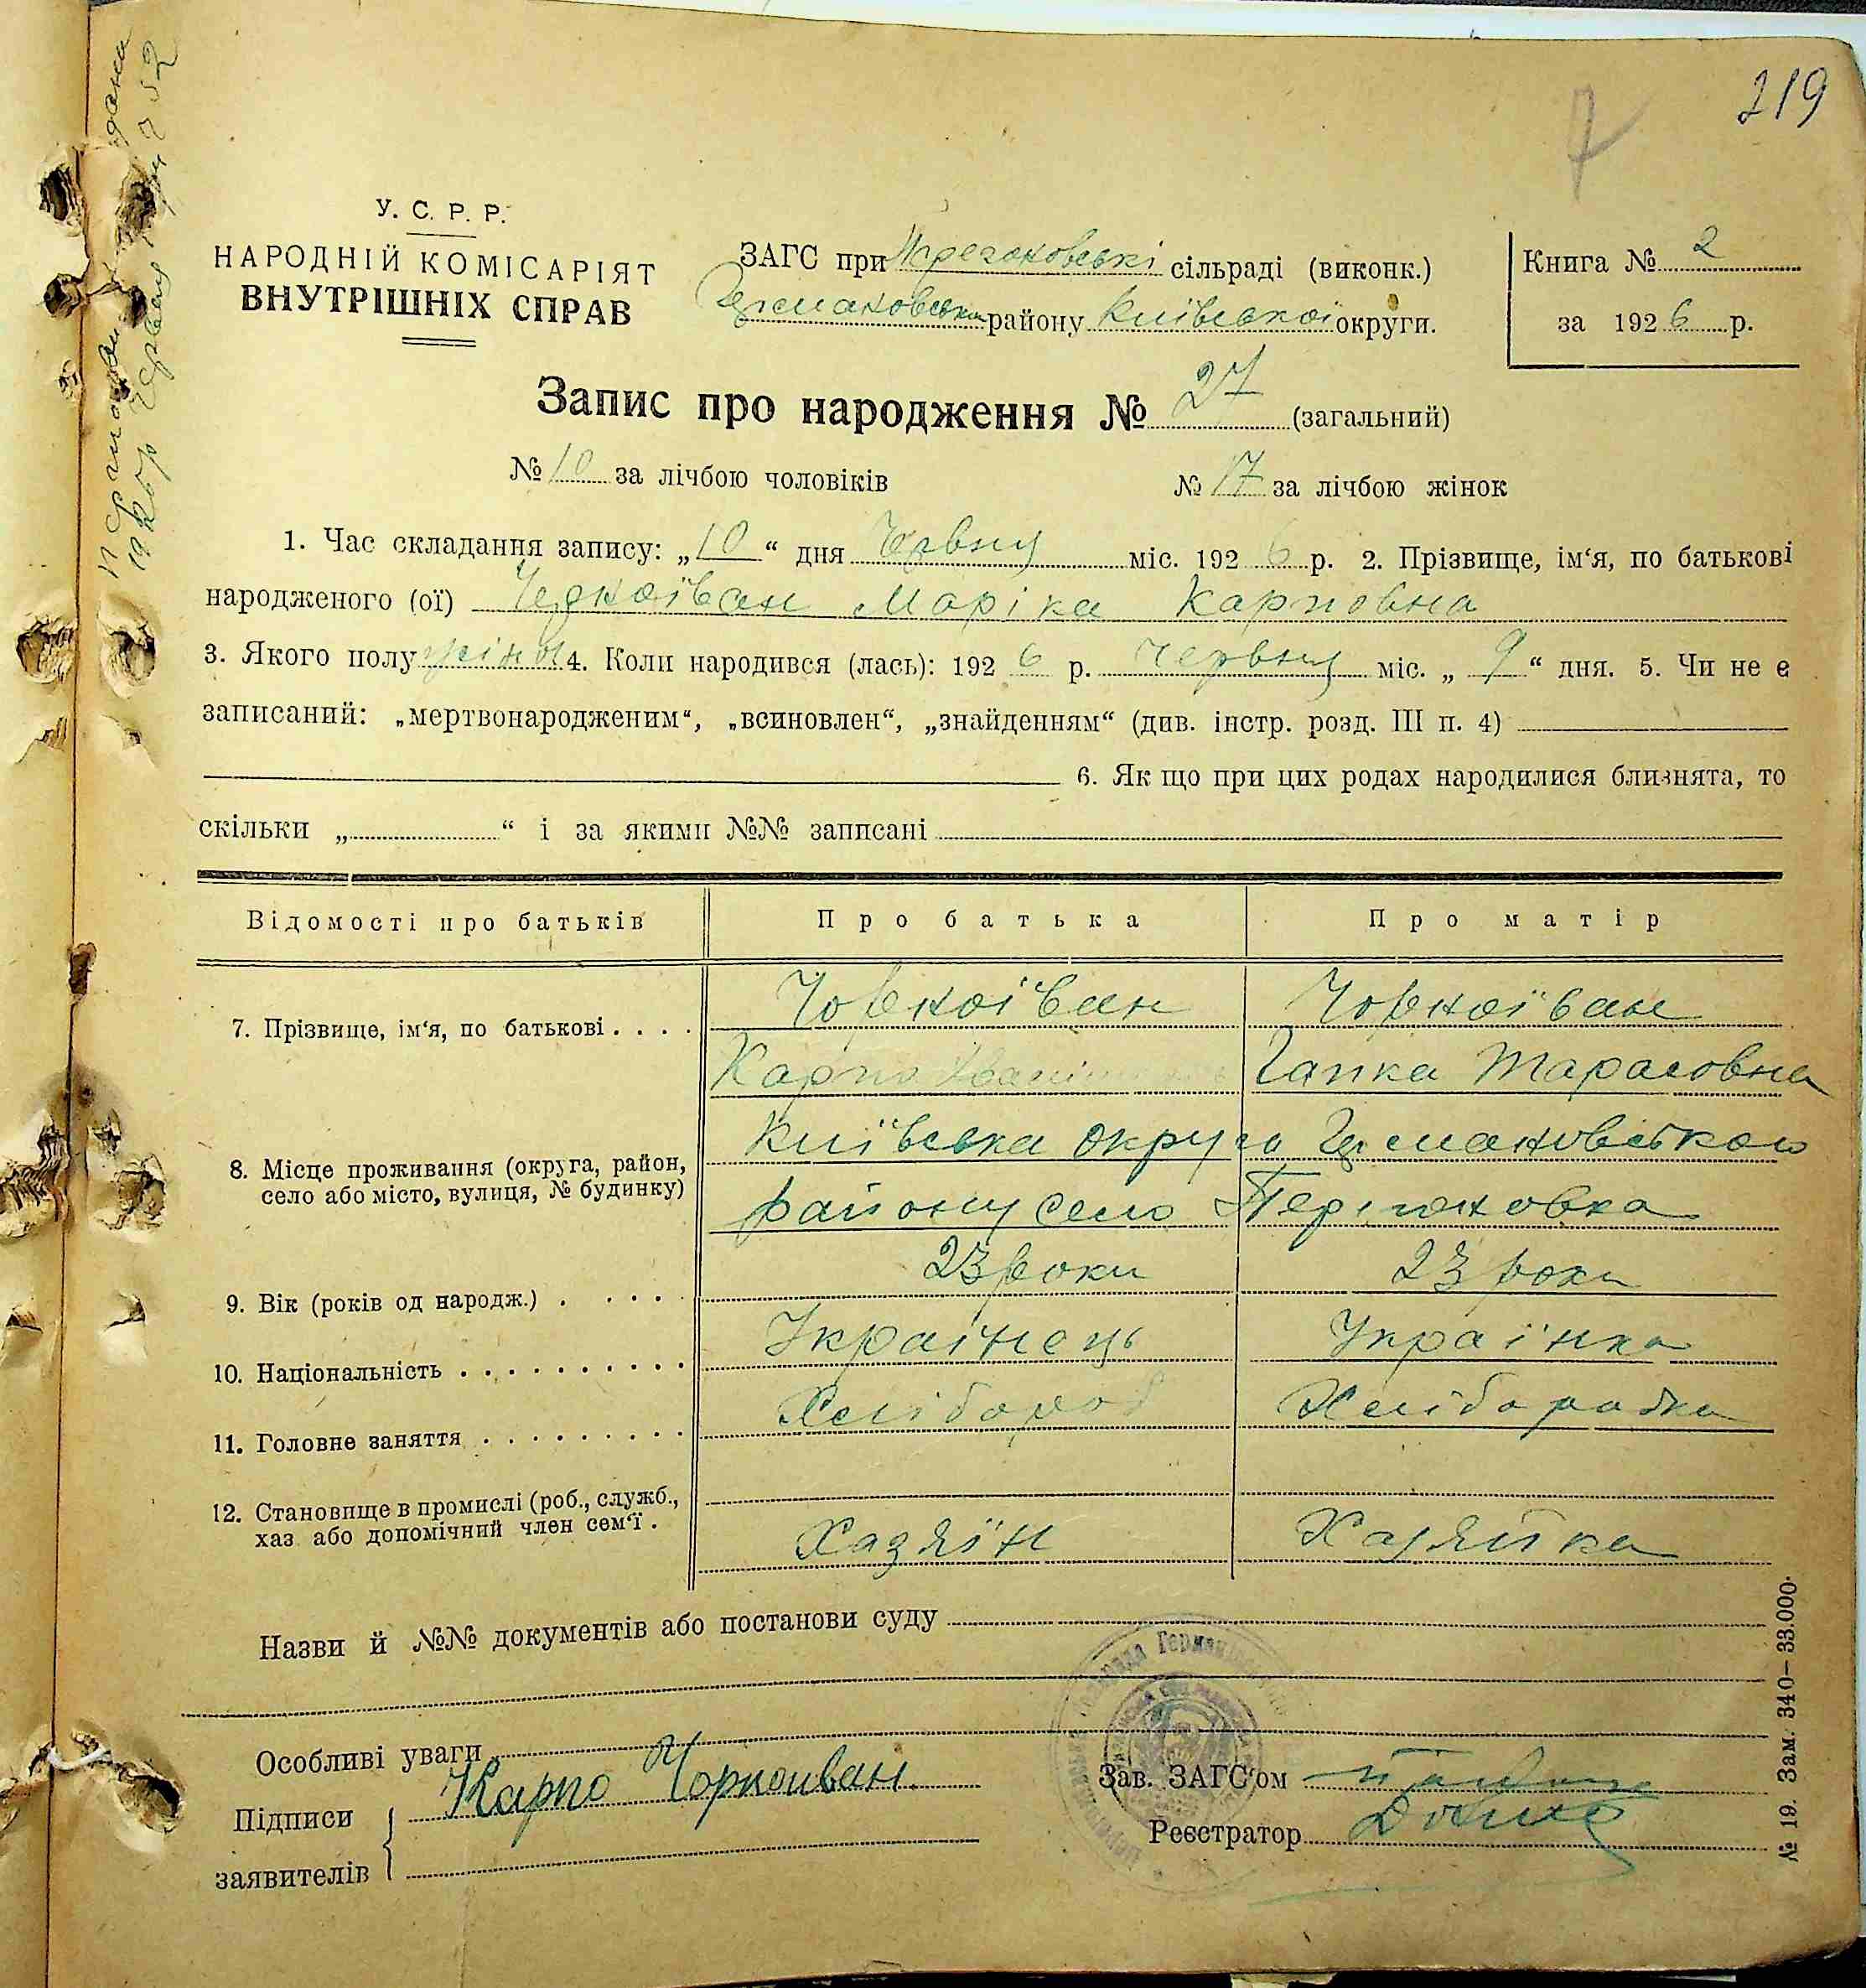 219
7
У. С. Р. Р.
НАРОДНІЙ КОМІСАРІЯТ
ВНУТРІШНІХ СПРАВ
ЗАГС при сільраді (виконк.)
району Київської округи.
Книга № 2
за 1926 р.
Запис про народження № 27 (загальний)
№ 10 за лічбою чоловіків № 17 за лічбою жінок
1. Час складання запису: „10“ дня Червня міс. 1926 р. 2. Прізвище, ім‘я, по батькові
народженого (ої) Чорноіван Марійка Карповна
3. Якого полу жіноч 4. Коли народився (лась): 1926 р. Червня міс. „9“ дня. 5. Чи не є
записаний: „мертвонародженим“, „всиновлен“, „знайденням“ (див. інстр. розд. III п. 4)
6. Як що при цих родах народилися близнята, то
скільки „ “ і за якими №№ записані
Відомості про батьків Про батька Про матір
7. Прізвище, ім‘я, по батькові . . . . Чорноіван Чорноїван
Карпо Гапка Тарасовна
8. Місце проживання (округа, район,
село або місто, вулиця, № будинку)
Київська округа
району село
9. Вік (років од народж.) . . . . . 23 роки 23 роки
10. Національність . . . . . . . . . . Українець Українка
11. Головне заняття . . . . . . . . . Хлібороб Хліборобка
12. Становище в промислі (роб., служб.,
хаз або допомічний член сем‘ї .
Хазяїн Хазяйка
Назви й №№ документів або постанови суду
Особливі уваги
Підписи
заявителів
Карпо Чорноиван.
Зав. ЗАГС‘ом
Реєстратор
№ 19. Зам. 340–33.000.